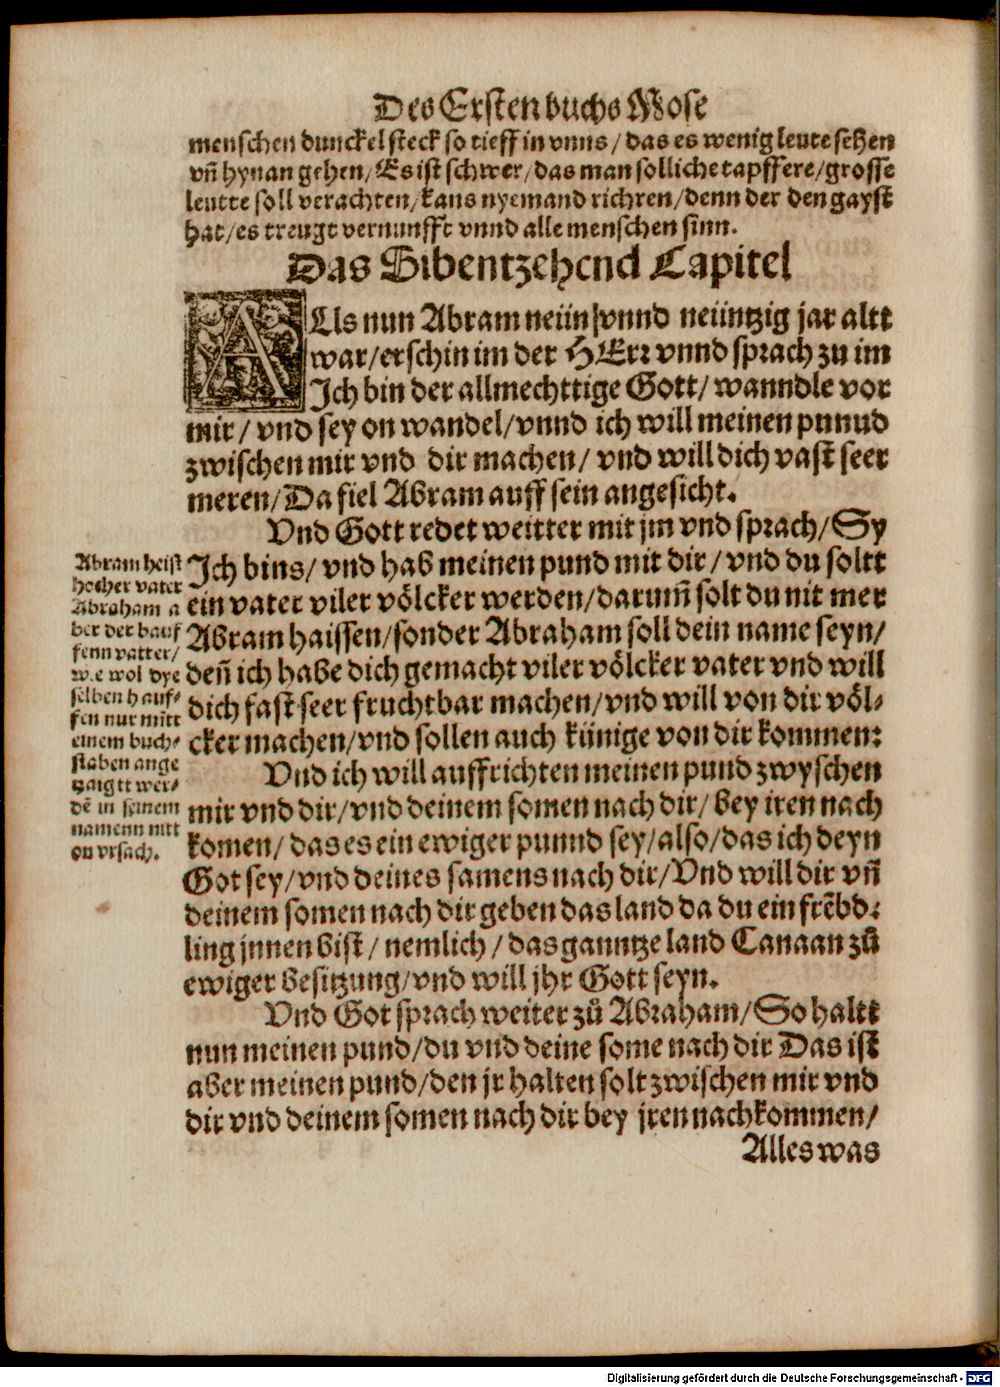 Des Ersten buchs Mose
menschen dunckel steck so tieff in vnns / das es wenig leute sehen
vn̄ hynan gehen / Es ist schwer / das man solliche tapffere / grosse
leutte soll verachten / kans nyemand richren / denn der den gayst
hat / es treugt vernunfft vnnd alle menschen sinn.
Das Sibentzehend Capitel
ALs nun Abram neün vnnd neüntzig jar altt
war / erschin im der HErr vnnd sprach zu im
Ich bin der allmechttige Gott / wanndle vor
mir / vnd sey on wandel / vnnd ich will meinen punnd
zwischen mir vnd dir machen / vnd will dich vast seer
meren / Da fiel Abram auff sein angesicht.
Vnd Gott redet weitter mit jm vnd sprach / Sy
Ich bins / vnd hab meinen pund mit dir / vnd du soltt
ein vater viler völcker werden / darum̄ solt du nit mer
Abram haissen / sonder Abraham soll dein name seyn /
den̄ ich habe dich gemacht viler völcker vater vnd will
dich fast seer fruchtbar machen / vnd will von dir völ-
cker machen / vnd sollen auch künige von dir kommen:
Vnd ich will auffrichten meinen pund zwyschen
mir vnd dir / vnd deinem somen nach dir / bey iren nach
komen / das es ein ewiger punnd sey / also / das ich deyn
Got sey / vnd deines samens nach dir / Vnd will dir vn̄
deinem somen nach dir geben das land da du ein frēbd-
ling jnnen bist / nemlich / das ganntze land Canaan zů
ewiger besitzung / vnd will jhr Gott seyn.
Vnd Got sprach weiter zů Abraham / So haltt
nun meinen pund / du vnd deine some nach dir Das ist
aber meinen pund / den jr halten solt zwischen mir vnd
dir vnd deinem somen nach dir bey jren nachkommen /
Alles was
Abram heist
hocher vater
Abraham a
ber der hauf
fenn vatter /
wie wol dye
selben hauf-
fen nur mitt
einem buch-
staben ange
zaigtt wer-
dē in seinem
namenn nitt
on vrsach.
Digitalisierung gefördert durch die Deutsche Forschungsgemeinschaft - DFG